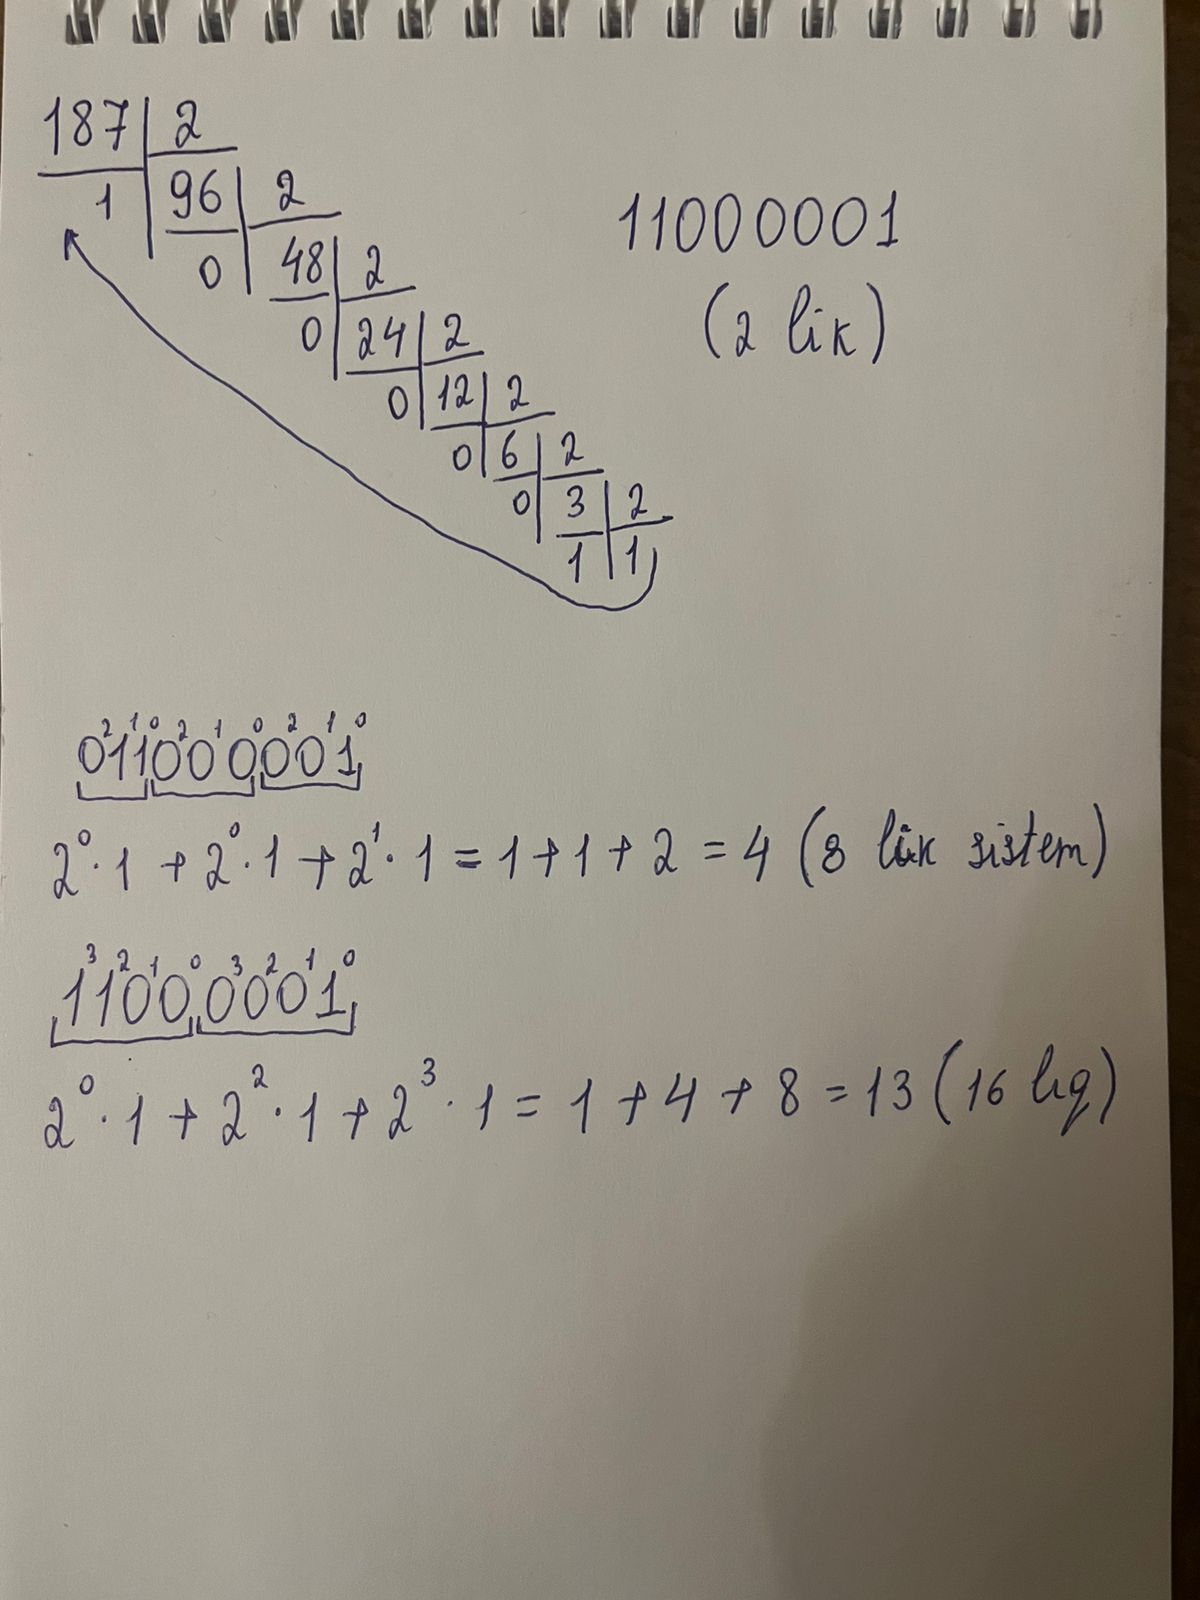 187 | 2
1 | 96 | 2
0 | 48 | 2
0 | 24 | 2
0 | 12 | 2
0 | 6 | 2
0 | 3 | 2
1 | 1
11000001
(2 lik)
0²1¹1⁰0²0¹0⁰0²0¹1⁰
2⁰·1 + 2⁰·1 + 2¹·1 = 1+1+2 = 4 (8 lik sistem)
1³1²0¹0⁰ 0³0²0¹1⁰
2⁰·1 + 2²·1 + 2³·1 = 1+4+8 = 13 (16 lıq)